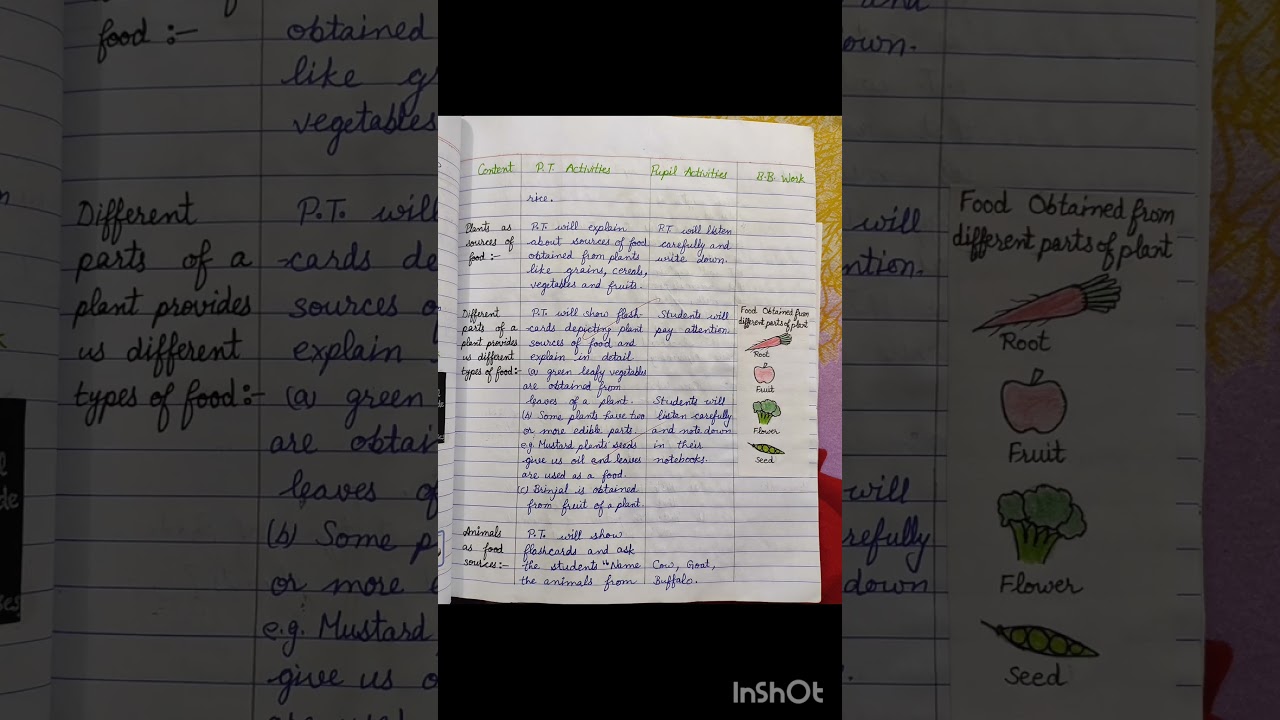 Content
P.T. Activities
Pupil Activities
B.B. Work
rice.
Plants as
sources of
food :-
P.T. will explain
about sources of food
obtained from plants
like grains, cereals,
vegetables and fruits.
P.T will listen
carefully and
write down.
Different
parts of a
plant provides
us different
types of food:-
P.T. will show flash-
cards depicting plant
sources of food and
explain in detail
(a) green leafy vegetables
are obtained from
leaves of a plant.
(b) Some plants have two
or more edible parts.
e.g. Mustard plants' seeds
give us oil and leaves
are used as a food.
(c) Brinjal is obtained
from fruit of a plant.
Students will
pay attention.
Students will
listen carefully
and note down
in their
notebooks.
Food Obtained from
different parts of plant
Root
Fruit
Flower
Seed
Animals
as food
sources:-
P.T. will show
flashcards and ask
the students "Name
the animals from
Cow, Goat,
Buffalo.
food :-
obtained
like g
vegetables
Different
parts of a
plant provides
us different
types of food:-
P.T. will
-cards de
sources o
explain
(a green
are obtai
leaves of
(b) Some p
or more e
e.g. Mustard
give us o
own.
will
ntion.
will
refully
down
Food Obtained from
different parts of plant
Root
Fruit
Flower
Seed
InShOt